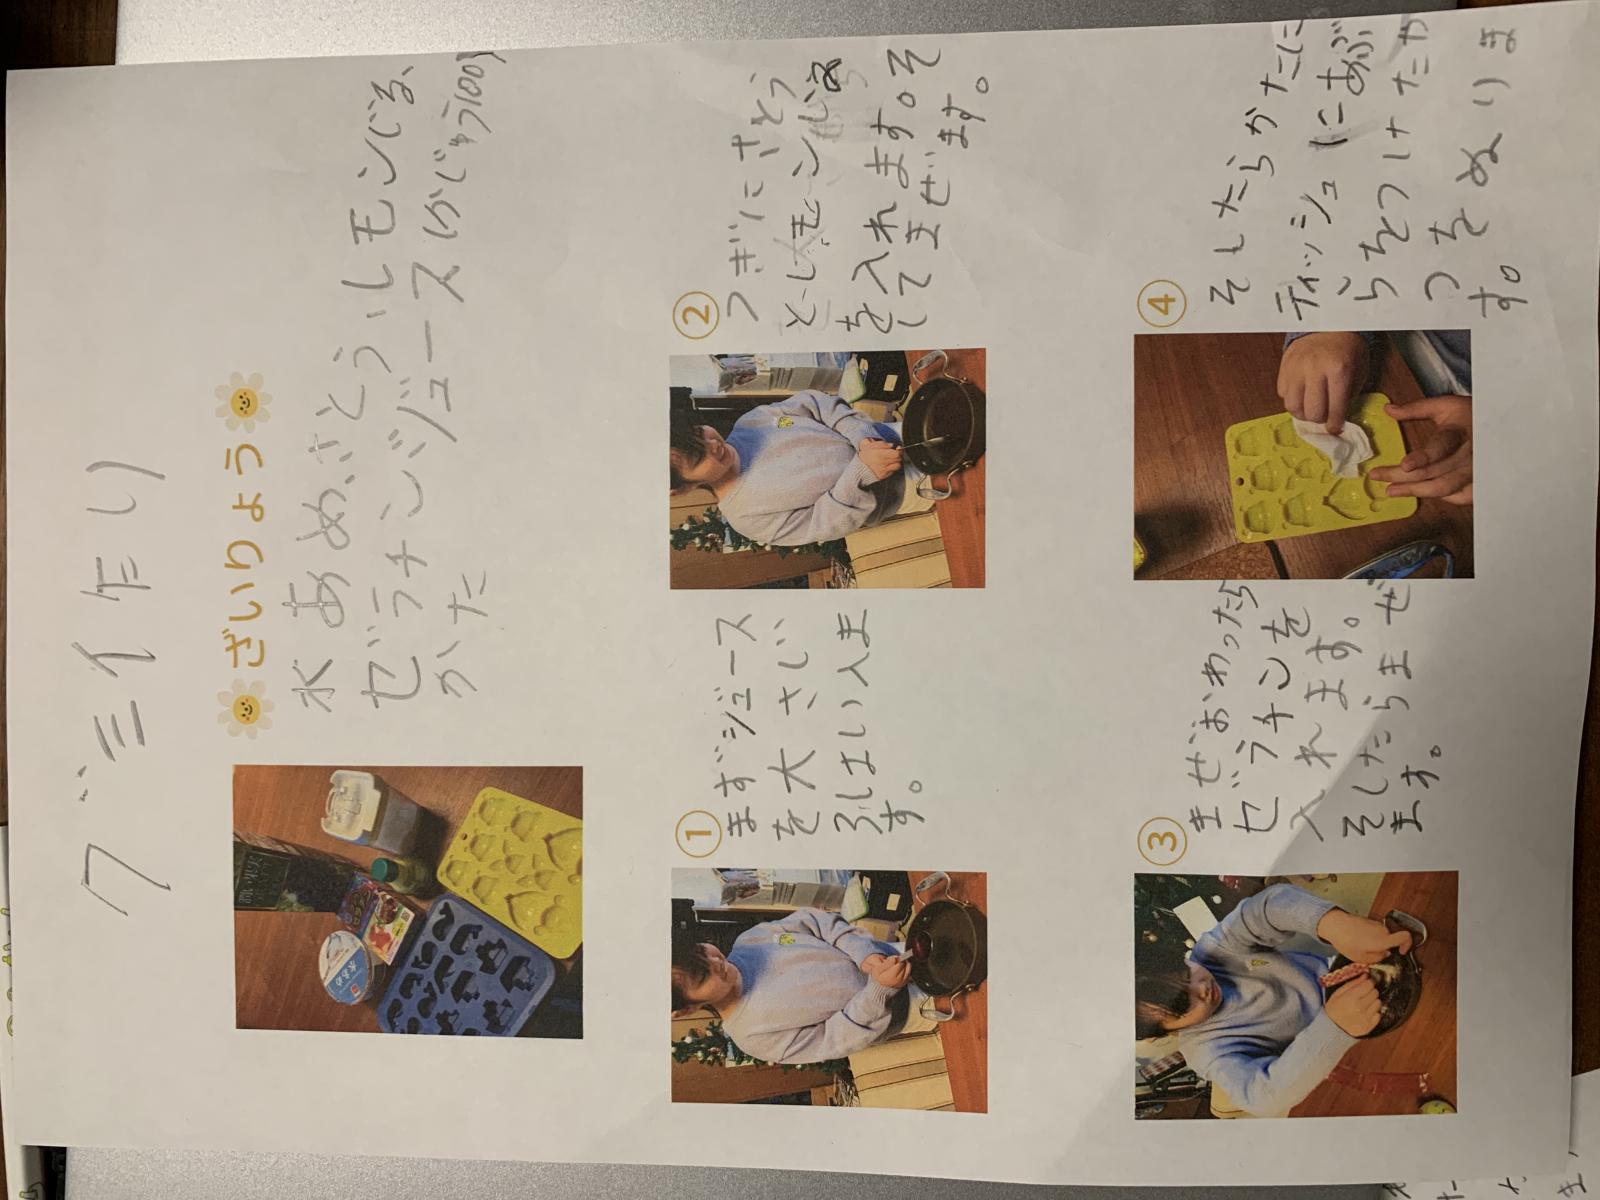 グミ作り
ざいりょう
水あめ、さとう、レモンじる、
ゼラチン、ジュース(かじゅう100)
かた
水あめ
①
まずジュース
を大さじ
ろしはい入ま
す。
②
つぎにさとう
とレモンじる
を入れます。そ
してまぜます。
③
まぜおわったら
ゼラチンを
入れます。
そしたらまぜ
ます。
④
そしたらかたに
ティッシュにあぶ
らをつけたや
つをぬりま
す。